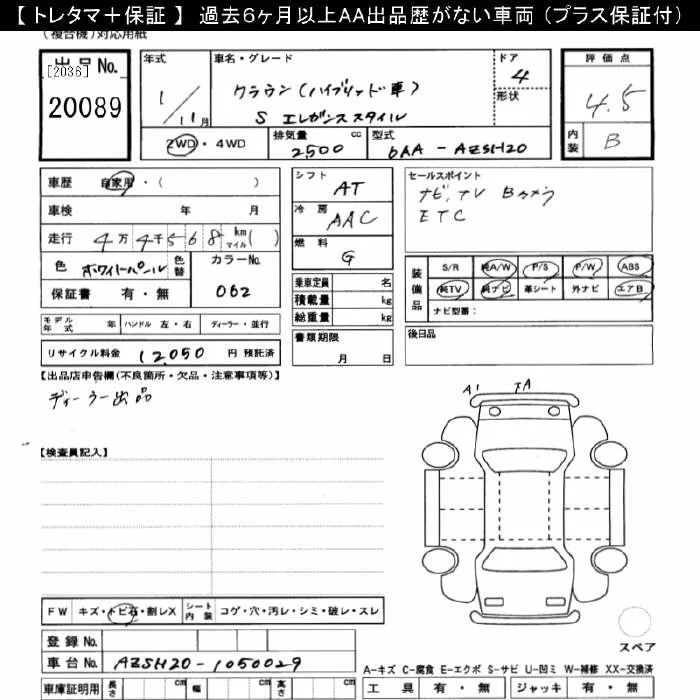 【 トレタマ＋保証 】 過去６ヶ月以上ＡＡ出品歴がない車両（プラス保証付）
（複合機）対応用紙
出品 No.
[2036]
20089
年式
1/11月
車名・グレード
クラウン（ハイブリッド車）
S エレガンススタイル
ドア
4
形状
評価点
4.5
内装 B
2WD・4WD
排気量 cc
2500
型式
6AA - AZSH20
車歴 自家用・（ ）
車検 年 月
走行 4万4千568 km マイル（ ）
色 ホワイトパール
色替
カラーNo.
062
保証書 有・無
シフト AT
冷房 AAC
燃料 G
乗車定員 名
積載量 kg
総重量 kg
セールスポイント
ナビ,TV Bカメラ
ETC
装備品
S/R 純A/W P/S P/W ABS
純TV 純ナビ 革シート 外ナビ エアB
ナビ型番：
モデル年式 年 ハンドル 左・右 ディーラー・並行
リサイクル料金 12,050 円 預託済
書類期限
月 日
後日品
【出品店申告欄(不良箇所・欠品・注意事項等)】
ディーラー出品
A1 TA
【検査員記入】
FW キズ・トビ石・割レX シート内装 コゲ・穴・汚レ・シミ・破レ・スレ
スペア
登録 No.
車台 No. AZSH20-1050029
A-キズ C-腐食 E-エクボ S-サビ U-凹ミ W-補修 XX-交換済
車庫証明用 長さ cm 幅 cm 高さ cm
工具 有・無 ジャッキ 有・無